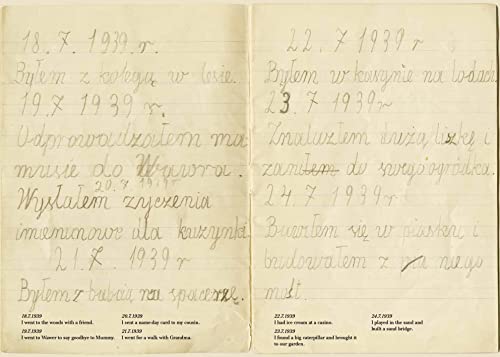 18.7. 1939 r.
Byłem z kolegą w lesie.
19.7 1939 r.
Odprowadzałem ma
musie do Wawora.
20.7 1939 r
Wysłałem zyczenia
imieninowe dla kuzynki
21.7 1939 r
Byłem z babcią na spacerze.
18.7.1939
I went to the woods with a friend.
19.7.1939
I went to Wawer to say goodbye to Mummy.
20.7.1939
I sent a name-day card to my cousin.
21.7.1939
I went for a walk with Grandma.
22.7 1939 r
Byłem w kasynie na lodach
23.7 1939 r
Znalazłem dużą liszkę i
do swego ogródka.
24.7 1939 r
Bawiłem się w piasku i
budowałem z niego
most.
22.7.1939
I had ice cream at a casino.
23.7.1939
I found a big caterpillar and brought it
to our garden.
24.7.1939
I played in the sand and
built a sand bridge.